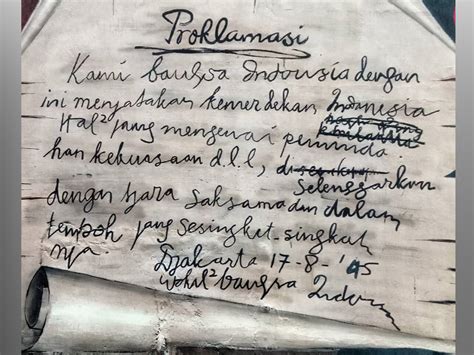 Proklamasi
Kami bangsa Indonesia dengan
ini menjatakan kemerdekan Indonesia
Hal² jang mengenai peminda
han kekuasaan d.l.l., diselenggarkan
dengan tjara saksama dan dalam
tempoh jang sesingket-singkat
nja.
Djakarta 17-8-'45
Wakil² bangsa Indon